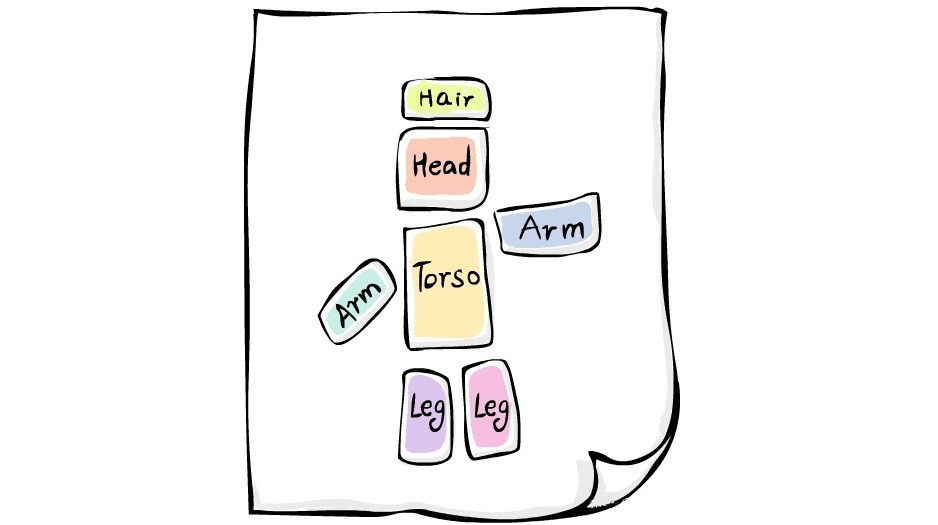 Hair
Head
Arm
Torso
Arm
Leg
Leg